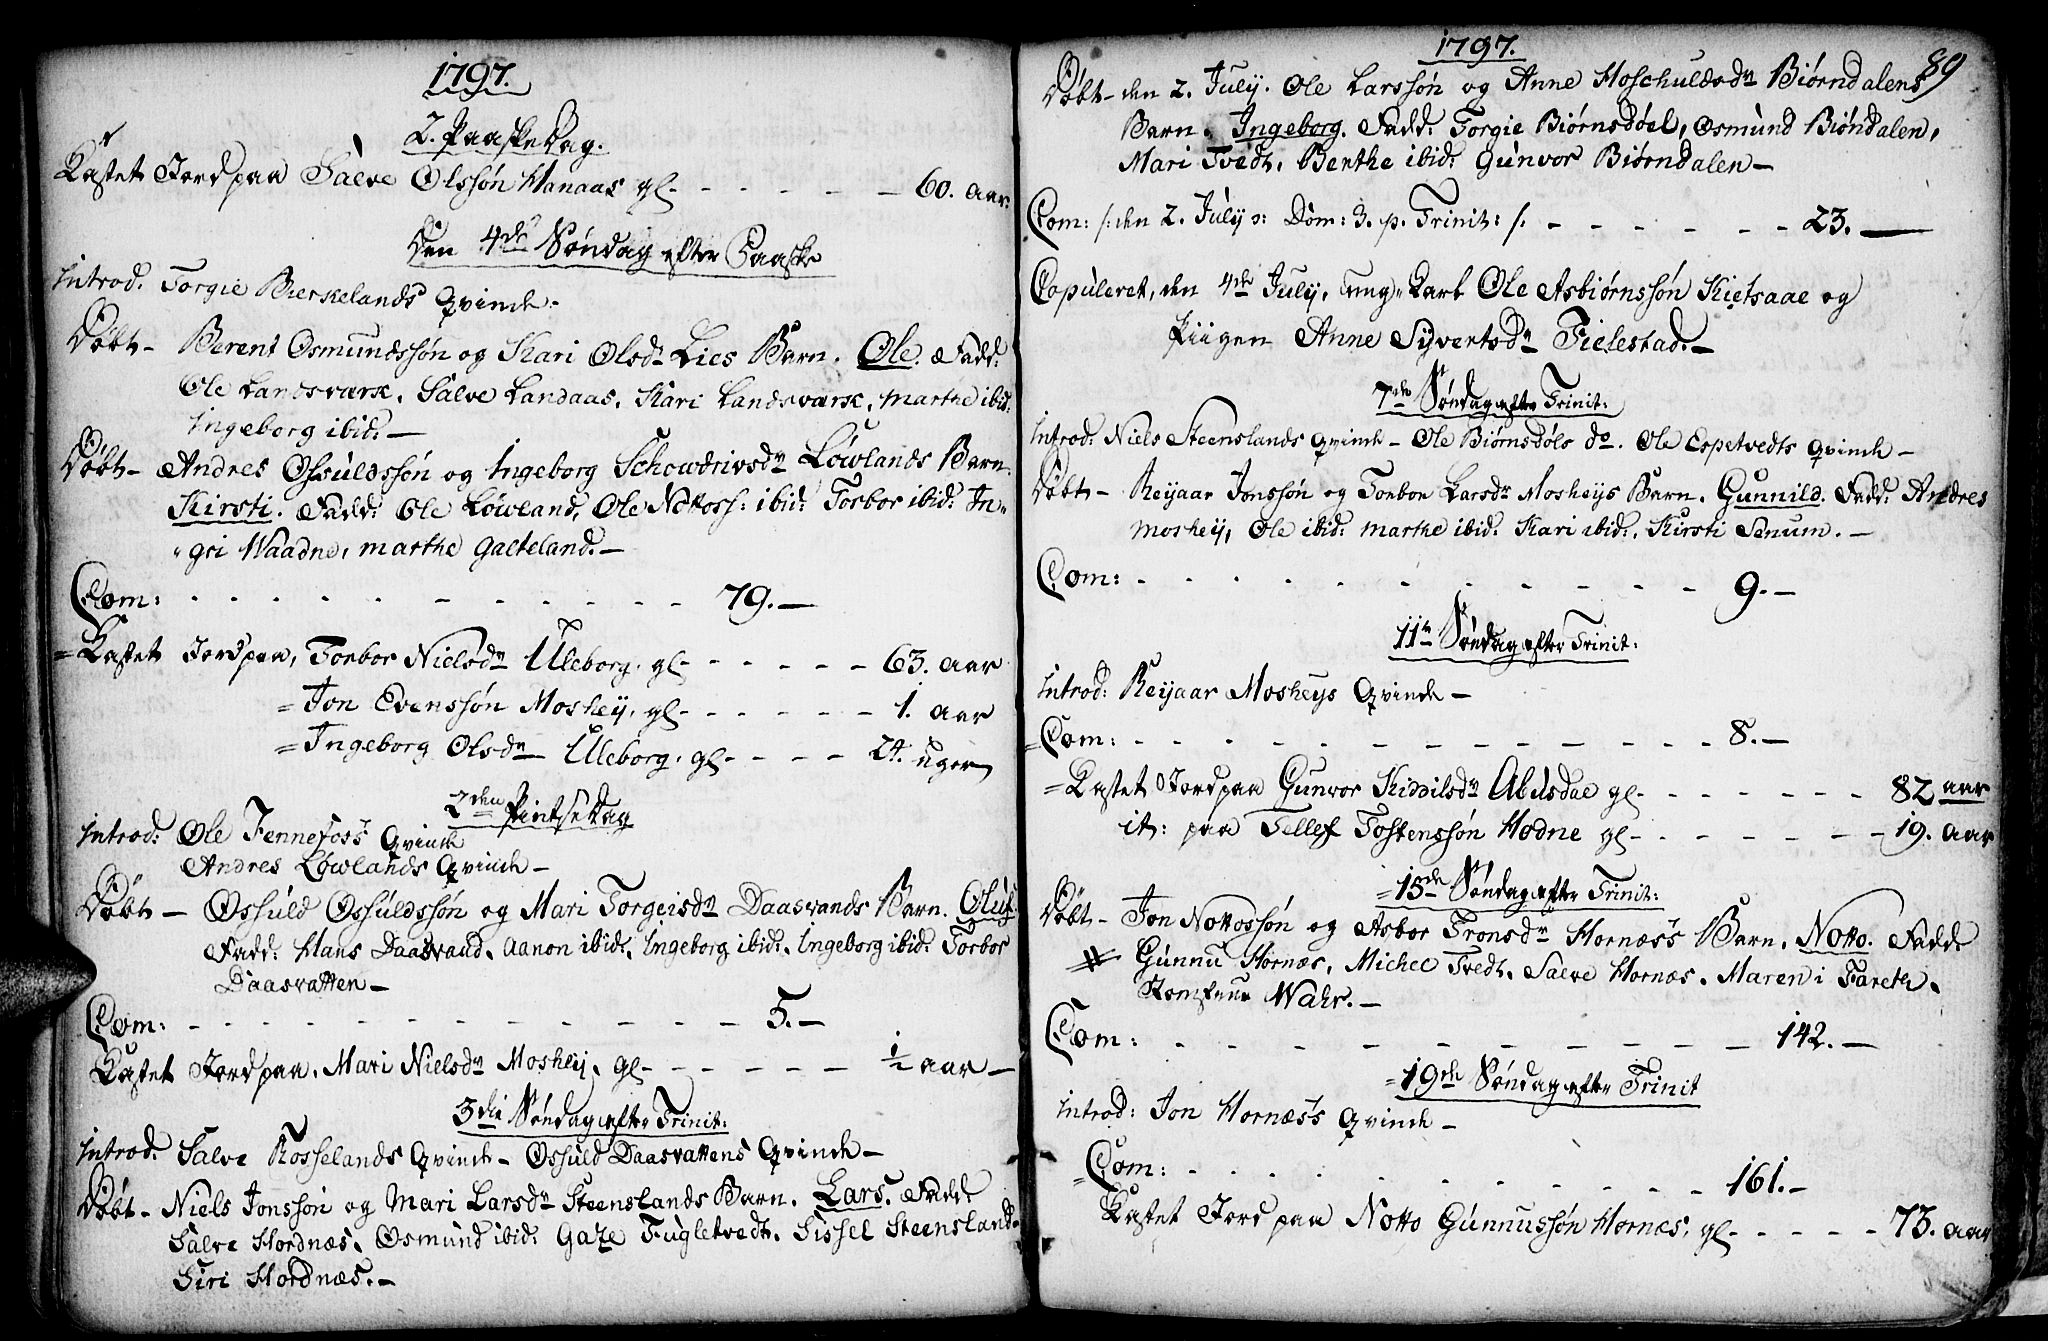 1797.
2. Paaske Dag.
Kastet Jord paa Salve Olssøn Hanaas gl. 60. aar.
Den 4de Søndag efter Paaske
Introd. Torgie Birkelands Qvinde.
Døbt – Berent Osmundssøn og Kari Olsdr Lies Barn. Ole. Fadd:
Ole Landsværk, Salve Landaas, Kari Landsværk, Marthe ibid:
Ingeborg ibid: –
Døbt – Andres Ossuldssøn og Ingeborg Schowdrivsdr Løwlands Barn.
Kirsti. Fadd: Ole Løwland, Ole Nottoss: ibid: Torbor ibid: In-
gri Waadne, Marthe Galteland. –
Com: 79. –
Kastet Jord paa, Torbor Nielsdr Uleborg. gl. 63. aar
= Jon Evenssøn Moshey. gl. 1. aar
= Ingeborg Olsdr Uleborg. gl. 24. uger
2den Pintse Dag
Introd: Ole Fennefoss Qvinde
Andres Løwlands Qvinde –
Døbt – Ossuld Ossuldssøn og Mari Torgeisdr Daasvands Barn. Oluf.
Fadd: Hans Daasvand, Aanon ibid:, Ingeborg ibid:, Ingeborg ibid: Torbor
Daasvatten –
Com: 5. –
Kastet Jord paa, Mari Nielsdr Moshey. gl. ½ aar –
3die Søndag efter Trinit:
Introd. Salve Rosselands Qvinde – Ossuld Daasvattens Qvinde –
Døbt – Niels Jonssøn og Mari Larsdr Steenslands Barn. Lars. Fadd:
Salve Hordnæs, Osmund ibid: Gaze Fugletvedt, Sissel Steensland
Siri Hordnæs. –
1797.
89
Døbt – den 2. July. Ole Larssøn og Anne Hoschuldsdr Biørndalens
Barn. Ingeborg. Fadd: Torgie Biørnsdøel, Osmund Biøndalen,
Mari Tvedt, Benthe ibid: Gunvor Biørndalen –
Com: /: den 2. July o: Dom: 3. p. Trinit: /. 23. –
Copuleret, den 4de July, Ung-Karl Ole Asbiørnssøn Kietsaae og
Piigen Anne Syvertsdr Fielestad. –
7de Søndag efter Trinit:
Introd: Niels Steenslands Qvinde – Ole Biørnsdøls do. Ole Espetvedts Qvinde –
Døbt – Reyaar Jonssøn og Torbor Larsdr Mosheys Barn. Gunnild. Fadd: Andres
Moshey, Ole ibid: Marthe ibid: Kari ibid:, Kirsti Senum. –
Com: 9. –
11te Søndag efter Trinit:
Introd: Reyaar Mosheys Qvinde –
Com: 8. –
= Kastet Jord paa Gunvor Kiddilsdr Abusdae gl. 82 aar
it: paa Tellef Tostenssøn Hodne gl. 19. aar
= 15de Søndag efter Trinit:
Døbt – Jon Nottossøn og Asbor Tronsdr Hornæss Barn. Notto. Fadd:
Gunnu Hornæs, Michel Tvedt, Salve Hornæs, Maren i Fareth,
Wahr. –
Com: 142. –
= 19de Søndag efter Trinit
Introd: Jon Hornæss Qvinde –
Com: 161. –
Kastet Jord paa Notto Gunnussøn Hornæs, gl. 73. aar